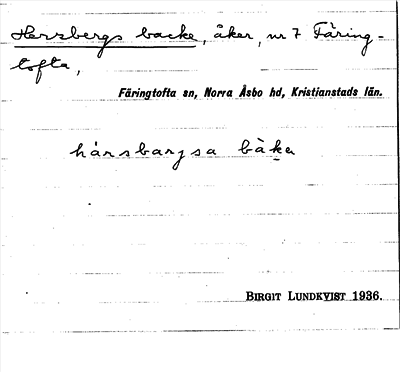 Herrbergs backe, åker, nr 7 Färing-
tofta,
Färingtofta sn, Norra Åsbo hd, Kristianstads län.
bàka
BIRGIT LUNDKVIST 1936.